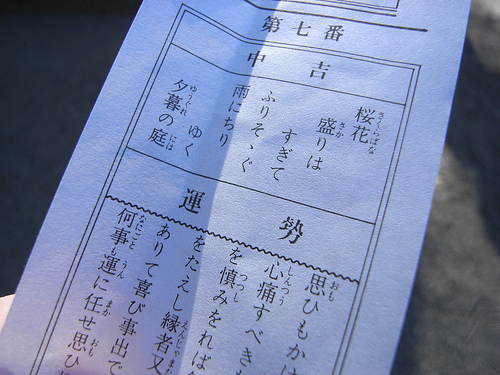 第七番
中吉
桜花
盛りは
すぎて
ふりそゝぐ
雨にちり
ゆく
夕暮の庭
運勢
思ひもかけ
心痛すべき
を慎みをれば
をたえし縁者又
ありて喜び事出で
何事も運に任せ思ひ